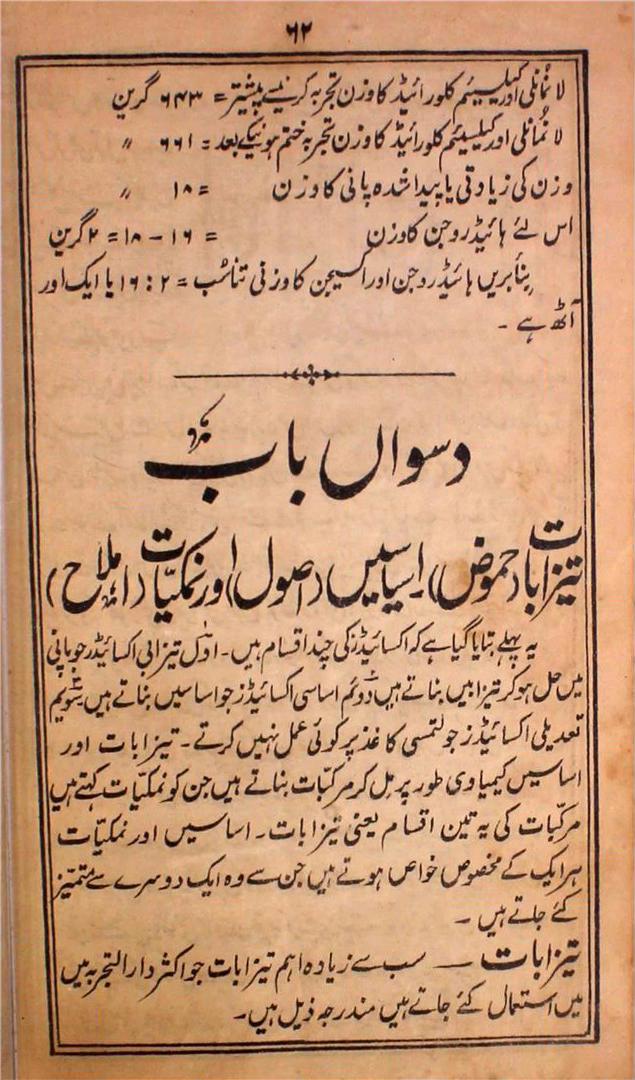 ۶۲
لانمانلی اور کیلسیئم کلورائیڈ کا وزن تجربہ کرنیسے پیشتر = ۶۴۳ گرین
لانمانلی اور کیلسیئم کلورائیڈ کا وزن تجربہ ختم ہونیکے بعد = ۶۶۱ 〃
وزن کی زیادتی یا پیدا شدہ پانی کا وزن = ۱۸ 〃
اس لئے ہائیڈروجن کا وزن = ۱۶ - ۱۸ = ۲ گرین
بنابریں ہائیڈروجن اور آکسیجن کا وزنی تناسُب = ۲ : ۱۶ یا ایک اور
آٹھ ہے -
دسواں باب
تیزابات (حموض) اساسیں (اصول) اور نمکیّات (املاح)
یہ پہلے بتایا گیا ہے کہ اکسائیڈز کی چند اقسام ہیں - اوّل تیزابی اکسائیڈز جو پانی
میں حل ہو کر تیزابیں بناتے ہیں دُوئم اساسی اکسائیڈز جو اساسیں بناتے ہیں سوئم
تعدیلی اکسائیڈز جو لتمسی کاغذ پر کوئی عمل نہیں کرتے - تیزابات اور
اساسیں کیمیاوی طور پر مِل کر مرکّبات بناتے ہیں جن کو نمکیّات کہتے ہیں
مرکّبات کی یہ تین اقسام یعنی تیزابات - اساسیں اور نمکیّات
ہر ایک کے مخصوص خواص ہوتے ہیں جن سے وہ ایک دوسرے سے متمیّز
کئے جاتے ہیں -
تیزابات — سب سے زیادہ اہم تیزابات جو اکثر دارالتجربہ میں
میں استعمال کئے جاتے ہیں مندرجہ ذیل ہیں -